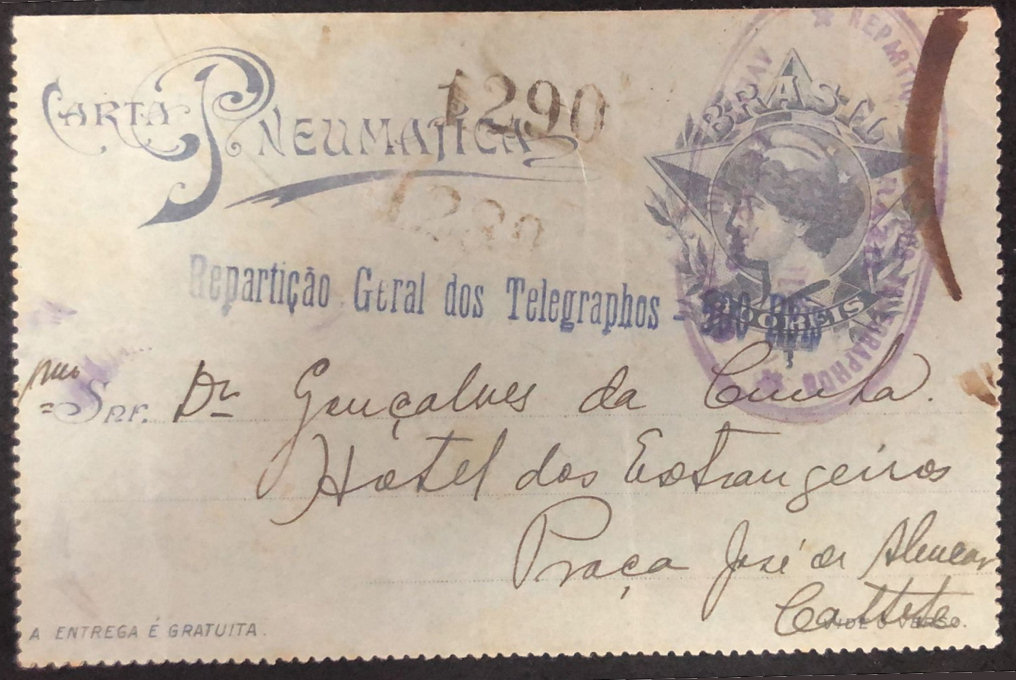 CARTA PNEUMATICA
1290
1290
BRASIL
Repartição Geral dos Telegraphos - 300 REIS
REIS
SNR. Dr Gonçalves da Cunha.
Hotel dos Estrangeiros
Praça José de Alencar
Cattete
A ENTREGA É GRATUITA.
VIDE O VERSO.